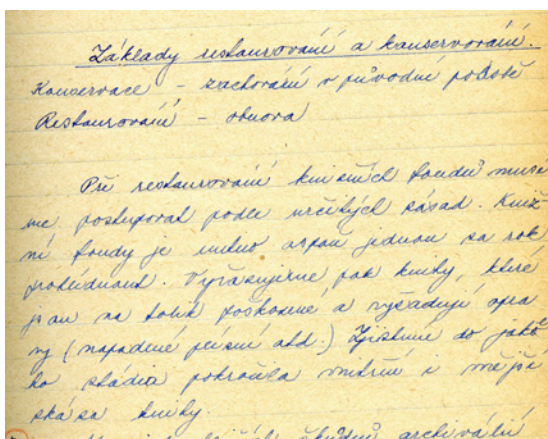 Základy restaurování a konservování.
Konservace - zachování v původní podobě
Restaurování - obnova
Při restaurování knižních fondů musí
me postupovat podle určitých zásad. Kniž
ní fondy je nutno aspoň jednou za rok
prohlédnout. Vyřazujeme pak knihy, které
jsou na tolik poškozené a vyžadují opra
vy (napadené plísní atd.) Zjistíme do jaké
ho stádia pokročila vnitřní i vnější
zkáza knihy.
škůdců archiválií